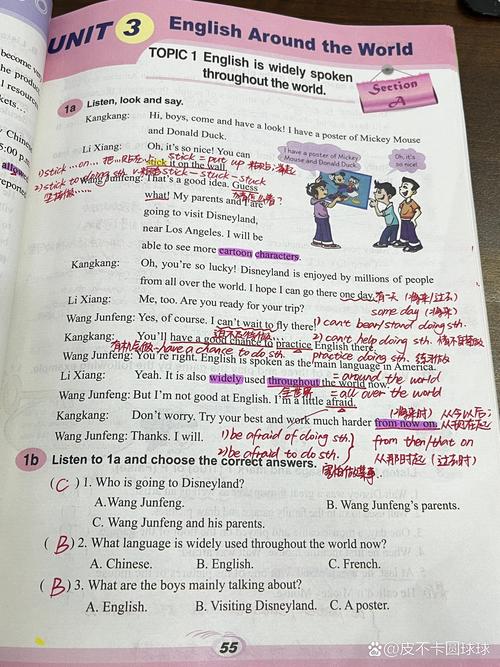 UNIT 3 English Around the World
TOPIC 1 English is widely spoken
throughout the world.
Section
A
1a Listen, look and say.
Kangkang: Hi, boys, come and have a look! I have a poster of Mickey Mouse
and Donald Duck.
Li Xiang: Oh, it's so nice! You can
stick it on the wall.
I have a poster of Mickey
Mouse and Donald Duck.
Oh, it's
so nice!
1) stick...on... 把...贴在 stick = put up
2) stick to doing sth. stick-stuck-stuck
坚持做...
Wang Junfeng: That's a good idea. Guess
what! My parents and I are
going to visit Disneyland,
near Los Angeles. I will be
able to see more cartoon characters.
Kangkang: Oh, you're so lucky! Disneyland is enjoyed by millions of people
from all over the world. I hope I can go there one day.
有一天 (将来/过去)
some day (将来)
Li Xiang: Me, too. Are you ready for your trip?
Wang Junfeng: Yes, of course. I can't wait to fly there!
1) can't bear/stand doing sth.
迫不及待做...
2) can't help doing sth.
Kangkang: You'll have a good chance to practice English there.
有机会做...have a chance to do sth. practice doing sth. 练习做
Wang Junfeng: You're right. English is spoken as the main language in America.
Li Xiang: Yeah. It is also widely used throughout the world now.
= around the world
全世界 = all over the world
Wang Junfeng: But I'm not good at English. I'm a little afraid.
Kangkang: Don't worry. Try your best and work much harder from now on.
(将来时) 从今以后
从现在起
Wang Junfeng: Thanks. I will.
1) be afraid of doing sth.
2) be afraid to do sth.
害怕做某事
from then/that on
从那时起 (过去时)
1b Listen to 1a and choose the correct answers.
( C ) 1. Who is going to Disneyland?
A. Wang Junfeng. B. Wang Junfeng's parents.
C. Wang Junfeng and his parents.
( B ) 2. What language is widely used throughout the world now?
A. Chinese. B. English. C. French.
( B ) 3. What are the boys mainly talking about?
A. English. B. Visiting Disneyland. C. A poster.
55
@皮不卡圆球球